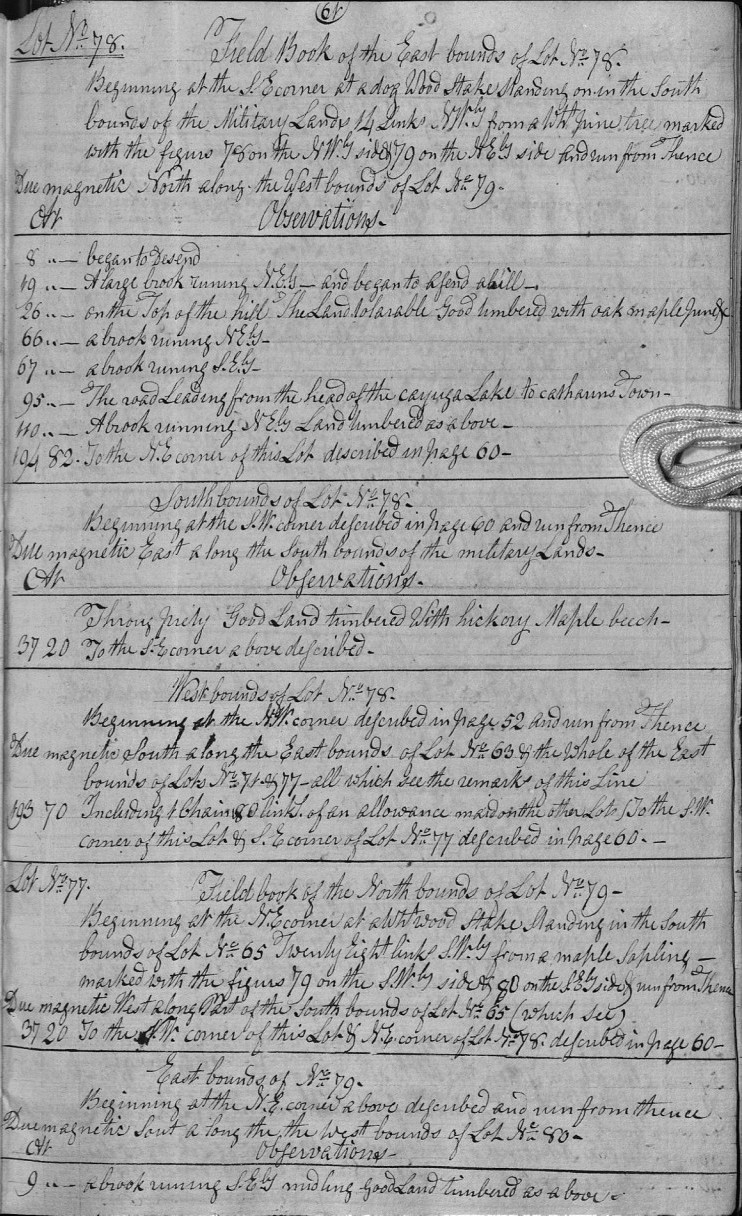 61
Lot No. 78.
Field Book of the East bounds of Lot No. 78.
Beginning at the S.E corner at a dog Wood Stake standing on in the South
bounds of the Military Lands 14 Links N.Wly from a Wht pine tree marked
with the figurs 78 on the N.W.ly side & 79 on the N.Ely side and run from Thence
Due magnetic North along the West bounds of Lot No. 79-
Ch Observations-
8 " — began to Desend
19 " — A large brook runing N.Ely — and began to asend a hill —
26 " — on the Top of the hill The Land tolarable Good timbered with oak maple &c
66 " — a brook runing N.Ely-
67 " — a brook runing S.Ely-
95 " — The road Leading from the head of the cayuga Lake to catharins Town-
110 " — A brook running N.Ely Land timbered as above-
194 82 - To the N.E corner of this Lot described in page 60-
South bounds of Lot No. 78.
Beginning at the S.W. corner described in page 60 and run from Thence
Due magnetic East a long the South bounds of the military Lands-
Ch Observations-
Throug prity Good Land timbered With hickory Maple beech-
37 20 To the S.E corner above described-
West bounds of Lot No. 78-
Beginning at the N.W. corner described in page 52 and run from Thence
Due magnetic South along the East bounds of Lot No. 63 & the Whole of the East
bounds of Lots No. 71 & 77 - all which see the remarks of this Line
193 70 Including 1 Chain 80 links of an allowance maid on the other Lots To the S.W.
corner of this Lot & S.E corner of Lot No. 77 described in page 60. —
Lot No. 77.
Field book of the North bounds of Lot No. 79-
Beginning at the N.E corner at a Wht wood Stake Standing in the South
bounds of Lot No. 65 Twenty Eight links S.Wly from a maple Sapling —
marked with the figurs 79 on the S.W.ly side & 80 on the S.Ely side & run from Thence
Due magnetic West along Part of the South bounds of Lot No. 65 (which see)
37 20 To the N.W. corner of this Lot & N.E. corner of Lot No. 78. described in page 60-
East bounds of No. 79-
Beginning at the N.E. corner above described and run from thence
Due magnetic Sout a long the the West bounds of Lot No. 80-
Ch Observations-
9 " — a brook runing S.Ely midling Good Land timbered as above-